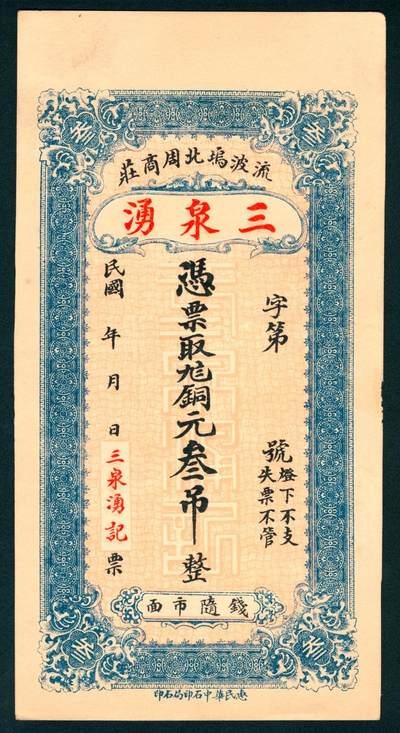 流波塢北周商莊
三泉湧
字第 號
燈下不支
失票不管
憑票取銅元叁吊整
民國 年 月 日 三泉湧記票
錢隨市面
叁
叁
叁
叁